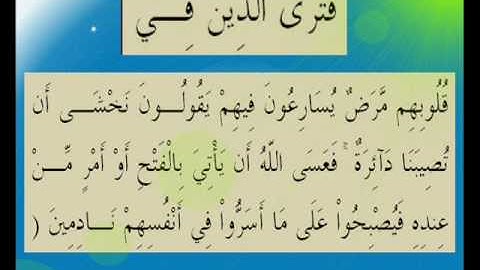 فَتَرَى الَّذِينَ فِـــي
قُلُوبِهِم مَّرَضٌ يُسَارِعُونَ فِيهِمْ يَقُولُـــونَ نَخْشَـــى أَن
تُصِيبَنَا دَآئِرَةٌ ۚ فَعَسَى اللّهُ أَن يَأْتِيَ بِالْفَتْحِ أَوْ أَمْرٍ مِّـــنْ
عِندِهِ فَيُصْبِحُواْ عَلَى مَا أَسَرُّواْ فِي أَنْفُسِهِمْ نَـــادِمِينَ (